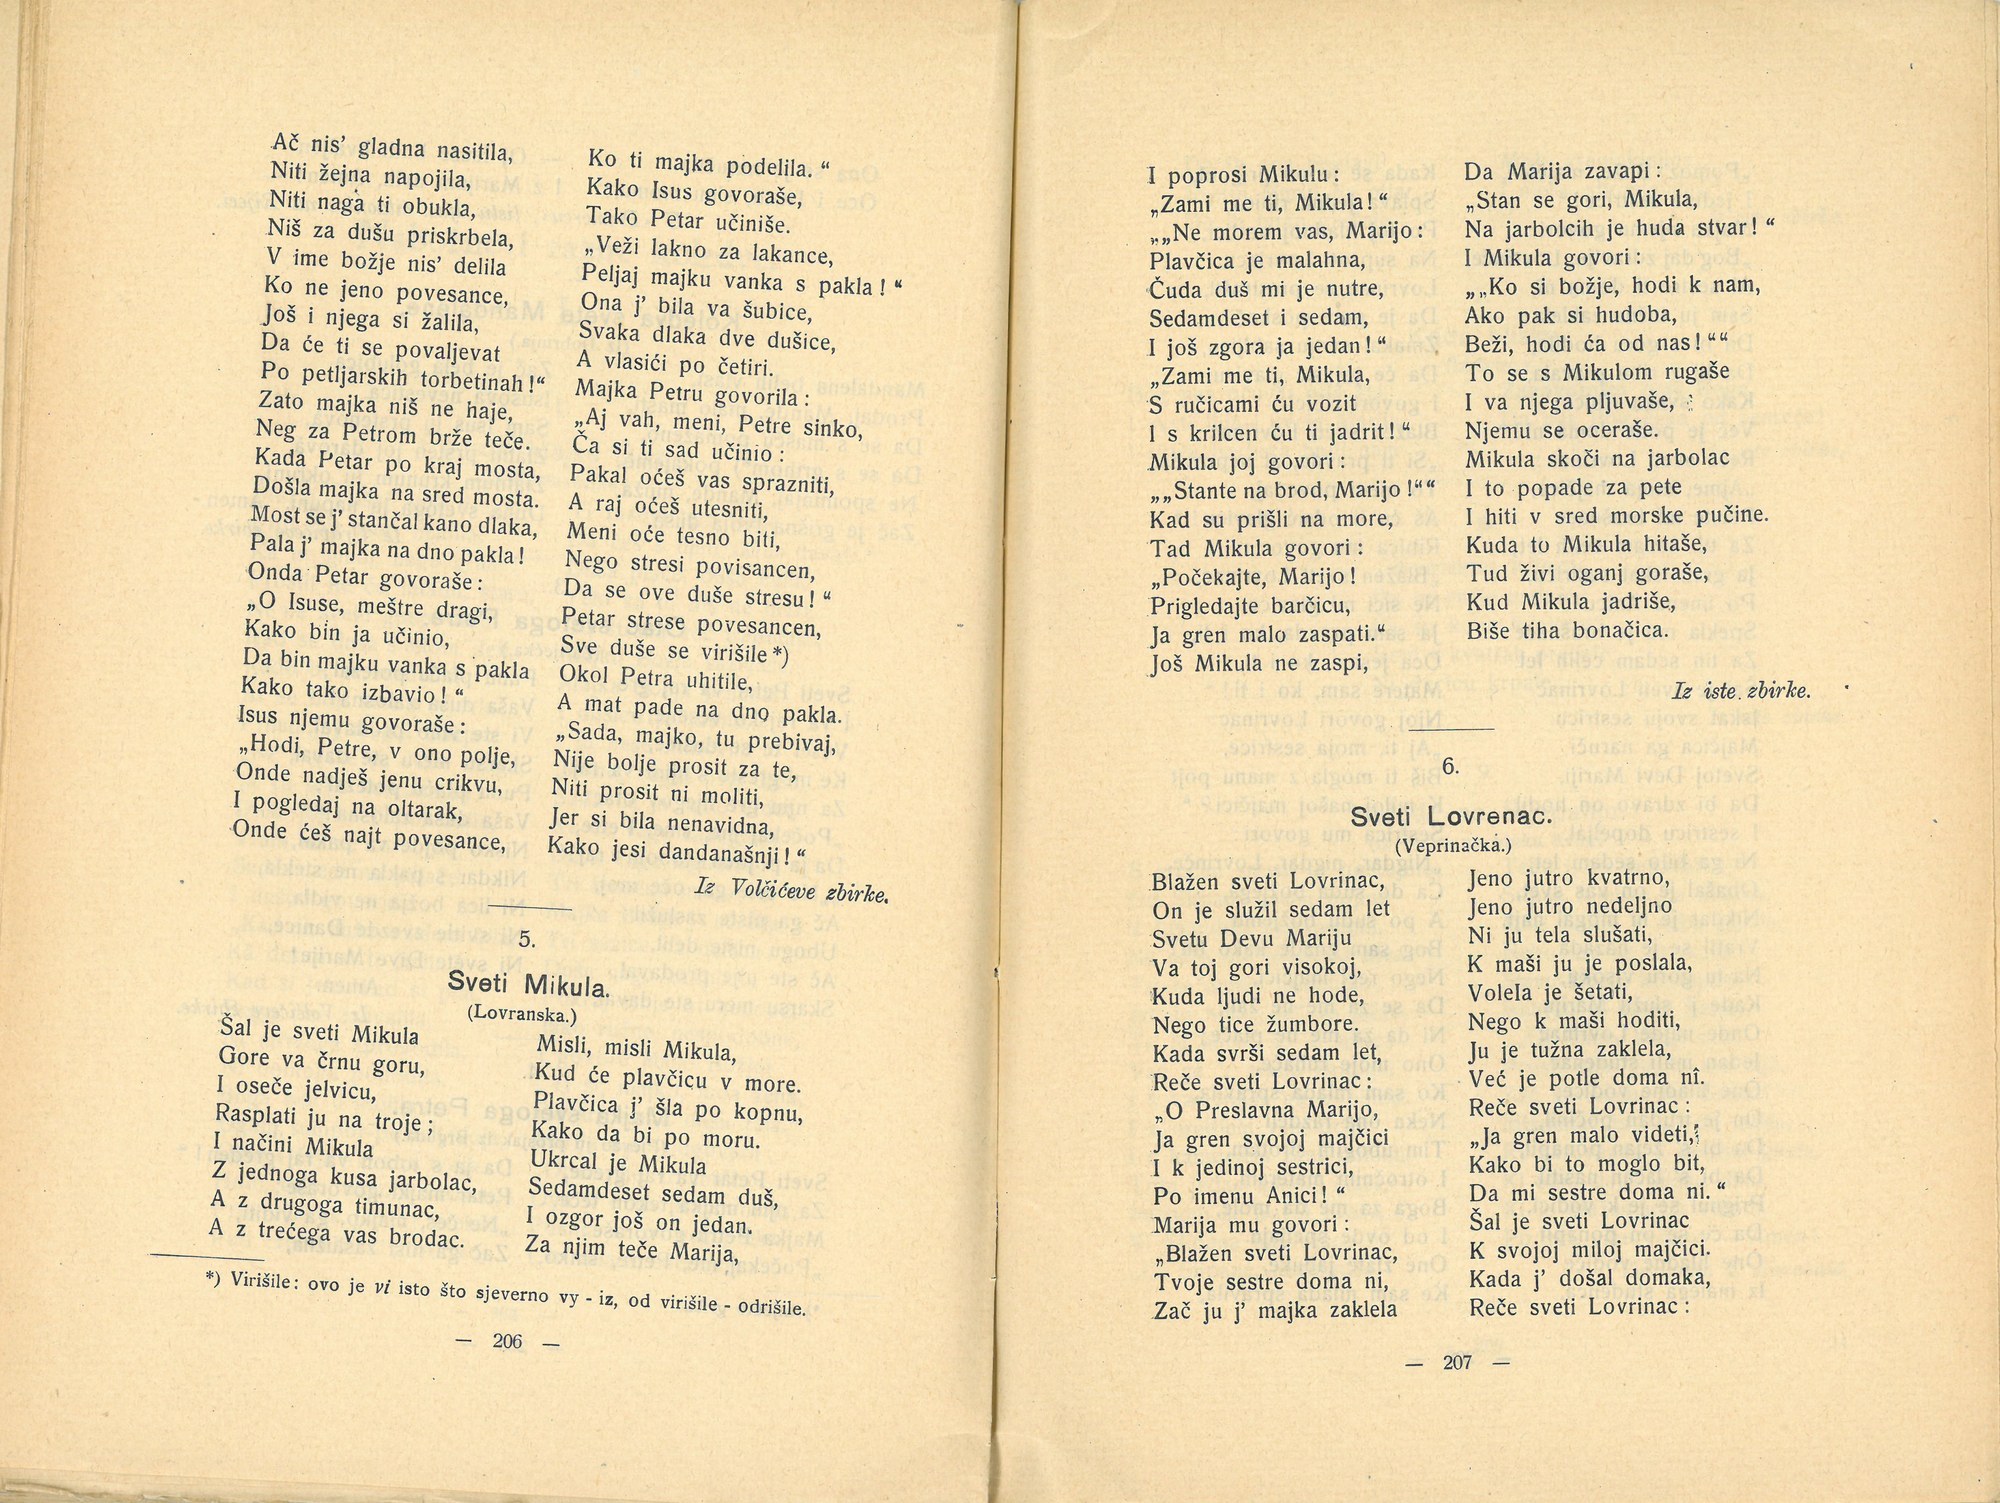 Ač nis' gladna nasitila,
Niti žejna napojila,
Niti naga ti obukla,
Niš za dušu priskrbela,
V ime božje nis' delila
Ko ne jeno povesance,
Još i njega si žalila,
Da će ti se povaljevat
Po petljarskih torbetinah!“
Zato majka niš ne haje,
Neg za Petrom brže teče.
Kada Petar po kraj mosta,
Došla majka na sred mosta.
Most se j' stančal kano dlaka,
Pala j' majka na dno pakla!
Onda Petar govoraše:
„O Isuse, meštre dragi,
Kako bin ja učinio,
Da bin majku vanka s pakla
Kako tako izbavio!“
Isus njemu govoraše:
„Hodi, Petre, v ono polje,
Onde nadješ jenu crikvu,
I pogledaj na oltarak,
Onde ćeš najt povesance,
Ko ti majka podelila.“
Kako Isus govoraše,
Tako Petar učiniše.
„Veži lakno za lakance,
Peljaj majku vanka s pakla!“
Ona j' bila va šubice,
Svaka dlaka dve dušice,
A vlasići po četiri.
Majka Petru govorila:
„Aj vah, meni, Petre sinko,
Ča si ti sad učinio:
Pakal oćeš vas sprazniti,
A raj oćeš utesniti,
Meni oće tesno biti,
Nego stresi povisancen,
Da se ove duše stresu!“
Petar strese povesancen,
Sve duše se virišile*)
Okol Petra uhitile,
A mat pade na dno pakla.
„Sada, majko, tu prebivaj,
Nije bolje prosit za te,
Niti prosit ni moliti,
Jer si bila nenavidna,
Kako jesi dandanašnji!“
Iz Volčićeve zbirke.
5.
Sveti Mikula.
(Lovranska.)
Šal je sveti Mikula
Gore va črnu goru,
I oseče jelvicu,
Rasplati ju na troje;
I načini Mikula
Z jednoga kusa jarbolac,
A z drugoga timunac,
A z trećega vas brodac.
Misli, misli Mikula,
Kud će plavčicu v more.
Plavčica j' šla po kopnu,
Kako da bi po moru.
Ukrcal je Mikula
Sedamdeset sedam duš,
I ozgor još on jedan.
Za njim teče Marija,
*) Virišile: ovo je vi isto što sjeverno vy - iz, od virišile - odrišile.
— 206 —
I poprosi Mikulu:
„Zami me ti, Mikula!“
„„Ne morem vas, Marijo:
Plavčica je malahna,
Čuda duš mi je nutre,
Sedamdeset i sedam,
I još zgora ja jedan!“
„Zami me ti, Mikula,
S ručicami ću vozit
I s krilcen ću ti jadrit!“
Mikula joj govori:
„„Stante na brod, Marijo!““
Kad su prišli na more,
Tad Mikula govori:
„Počekajte, Marijo!
Prigledajte barčicu,
Ja gren malo zaspati.“
Još Mikula ne zaspi,
Da Marija zavapi:
„Stan se gori, Mikula,
Na jarbolcih je huda stvar!“
I Mikula govori:
„„Ko si božje, hodi k nam,
Ako pak si hudoba,
Beži, hodi ća od nas!““
To se s Mikulom rugaše
I va njega pljuvaše,
Njemu se oceraše.
Mikula skoči na jarbolac
I to popade za pete
I hiti v sred morske pučine.
Kuda to Mikula hitaše,
Tud živi oganj goraše,
Kud Mikula jadriše,
Biše tiha bonačica.
Iz iste zbirke.
6.
Sveti Lovrenac.
(Veprinačka.)
Blažen sveti Lovrinac,
On je služil sedam let
Svetu Devu Mariju
Va toj gori visokoj,
Kuda ljudi ne hode,
Nego tice žumbore.
Kada svrši sedam let,
Reče sveti Lovrinac:
„O Preslavna Marijo,
Ja gren svojoj majčici
I k jedinoj sestrici,
Po imenu Anici!“
Marija mu govori:
„Blažen sveti Lovrinac,
Tvoje sestre doma ni,
Zač ju j' majka zaklela
Jeno jutro kvatrno,
Jeno jutro nedeljno
Ni ju tela slušati,
K maši ju je poslala,
Volela je šetati,
Nego k maši hoditi,
Ju je tužna zaklela,
Već je potle doma nî.
Reče sveti Lovrinac:
„Ja gren malo videti,
Kako bi to moglo bit,
Da mi sestre doma ni.“
Šal je sveti Lovrinac
K svojoj miloj majčici.
Kada j' došal domaka,
Reče sveti Lovrinac:
— 207 —